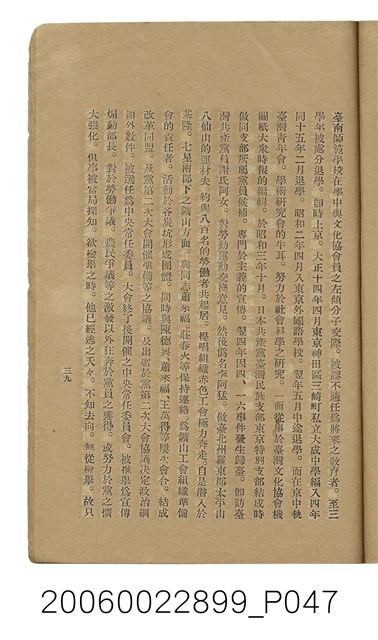 臺南師範學校在學中與文化協會員之左傾分子交際。被認不適任爲將來之敎育者。至三
學年被處分退學。卽時上京。大正十四年四月東京神田區三崎町私立大成中學編入四年
同十五年二月退學。昭和二年四月入東京外國語學校。翌年五月中途退學。而在京中執
臺灣靑年會。學術硏究會的牛耳。努力於社會科學之硏究。一面從事於臺灣文化協會機
關紙大衆時報的編輯。於昭和三年十月。日本共產黨臺灣民族支部東京特別支部結成時
做同支部所屬黨員候補。專門於主義的宣傳。翌四年因四、一六事件發生歸臺。卽訪臺
灣共產黨員謝氏阿女。對勞動運動交換意見。然後僞名李阿猛。做臺北州羅東郡太平山
八仙山的運材夫。約與八百名的勞働者共起居。提唱組織赤色工會極力奔走。自是潛入於
基隆。七星兩郡下之鑛山方面。與同志蕭來福。莊春火等保持連絡。爲鑛山工會組織準備
會的責任者。活動於各炭坑形成團體。同時與陳德興。蕭來福。王萬得等屢次會合。結成
改革同盟。及黨第二次大會開催準備等之協議。及出席於黨第二次大會協議決定政治綱
領外數件。被選任爲中央常任委員。大會終了後開催之中央常任委員會。被推舉爲宣傳
煽動部長。對於勞働爭議。農民爭議等之激發以外狂奔於黨員之獲得。或努力於黨之擴
大强化。俱事被當局探知。欲檢舉之時。他已經逃之夭々。不知去向。無從檢舉。故只
三九
20060022899_P047